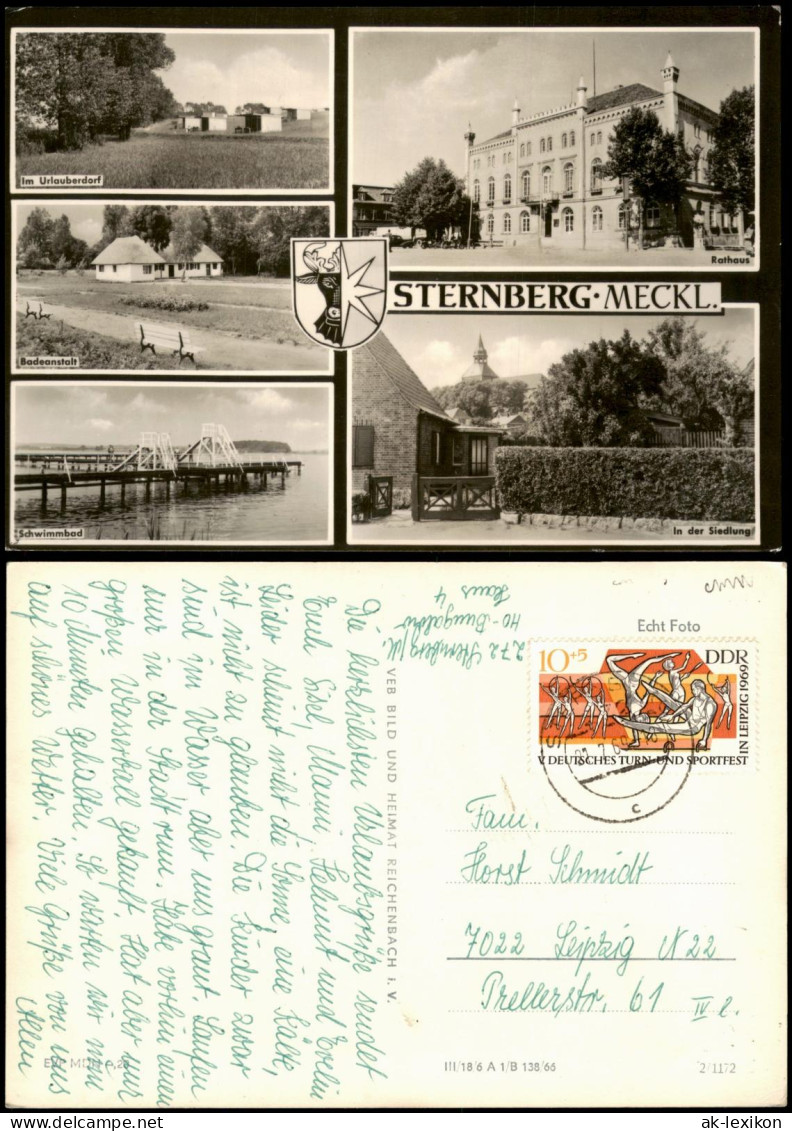 Im Urlauberdorf
Rathaus
Badeanstalt
STERNBERG · MECKL.
Schwimmbad
In der Siedlung
272 Sternberg/M.
40-Bungalow
Haus 4
Die herzlichsten Urlaubsgrüße sendet
Euch Sisel, Mami, Helmut und Evelin
Leider scheint nicht die Sonne, eine Kälte,
ist nicht zu glauben. Die Kinder zwar
sind im Wasser aber uns graut. Laufen
nur in der Stadt rum. Habe vorhin einen
großen Wasserball gekauft. Hat aber nur
10 Minuten gehalten. So warten wir nun
auf schönes Wetter. Viele Grüße von uns
Allen
VEB BILD UND HEIMAT REICHENBACH i. V.
Echt Foto
10+5 DDR
V. DEUTSCHES TURN- UND SPORTFEST
IN LEIPZIG 1969
c
Fam.
Horst Schmidt
7022 Leipzig N 22
Prellerstr. 61 IV r.
III/18/6 A 1/B 138/66
2/1172
ak-lexikon